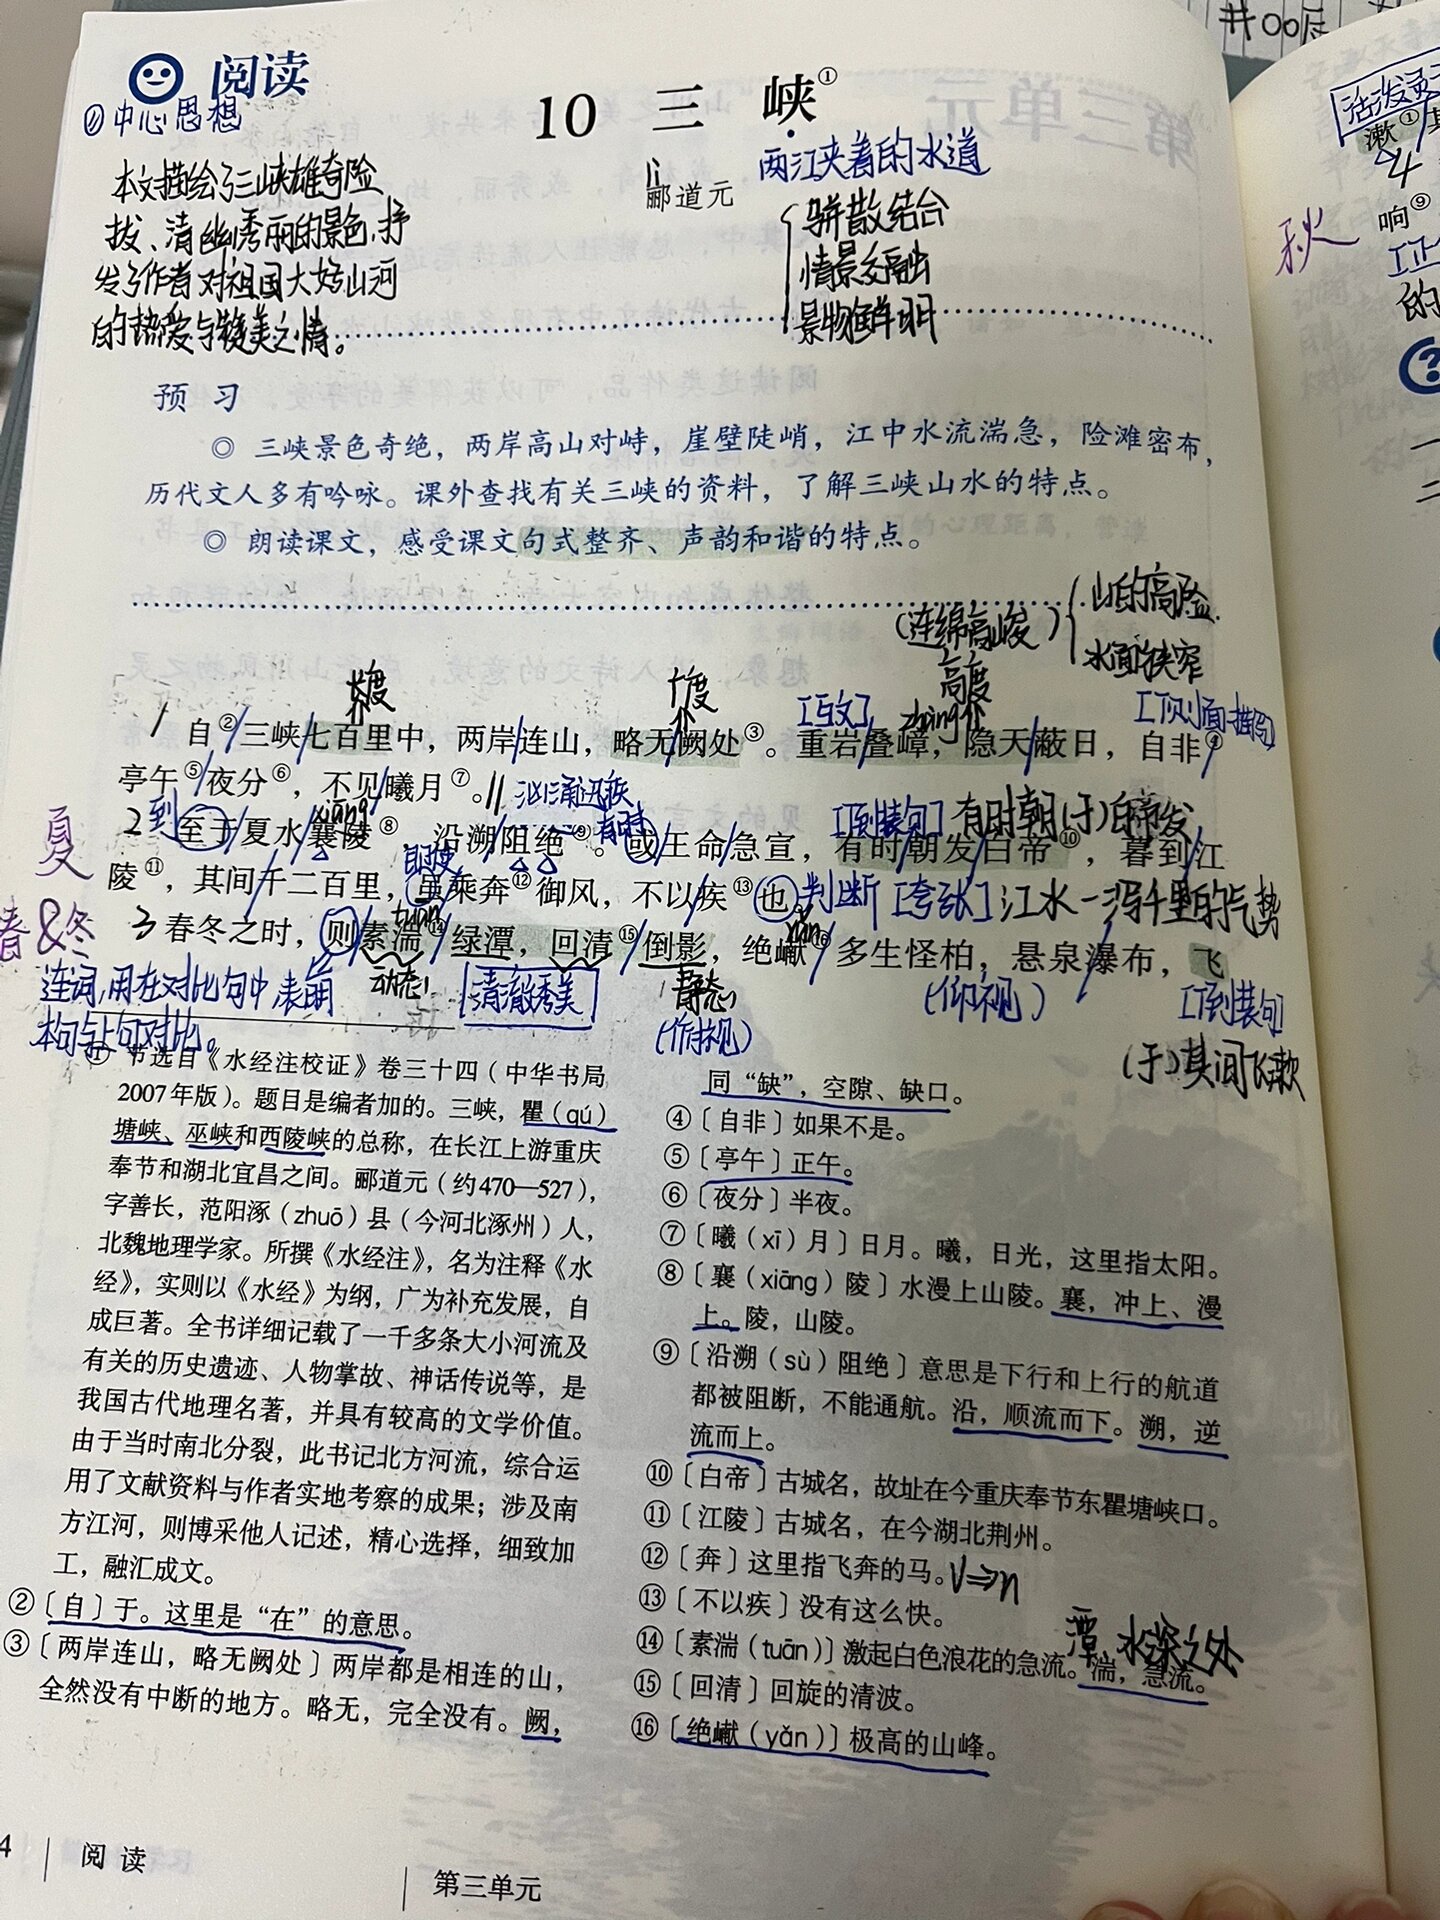 阅读
10 三 峡①
(1)中心思想
本文描绘了三峡雄奇险
拔、清幽秀丽的景色,抒
发了作者对祖国大好山河
的热爱与赞美之情。
lì
郦道元
两江夹着的水道
骈散结合
情景交融
景物鲜明
预 习
◎ 三峡景色奇绝，两岸高山对峙，崖壁陡峭，江中水流湍急，险滩密布，
历代文人多有吟咏。课外查找有关三峡的资料，了解三峡山水的特点。
◎ 朗读课文，感受课文句式整齐、声韵和谐的特点。
(连绵高峻)
山的高险.
水面的狭窄
长度
广度
[互文]
高度
zhàng
[侧面描写]
1 自②三峡七百里中，两岸连山，略无阙处③。重岩叠嶂，隐天蔽日，自非④
亭午⑤夜分⑥，不见曦月⑦。
汹涌迅疾
2 到
xiāng
有时
[倒装句]有时朝(于)白帝发
夏
至于夏水襄陵⑧，沿溯阻绝⑨。或王命急宣，有时朝发白帝⑩，暮到江
即使
陵⑪，其间千二百里，虽乘奔⑫御风，不以疾⑬也
判断 [夸张]江水一泻千里的气势
tuān
yǎn
春&冬
3 春冬之时，则素湍⑭绿潭，回清⑮倒影，绝巘⑯多生怪柏，悬泉瀑布，飞
连词,用在对比句中,表明
本句与上句对比。
动态
清澈秀美
静态
(俯视)
(仰视)
[倒装句]
(于)其间飞漱
① 节选自《水经注校证》卷三十四（中华书局
2007年版）。题目是编者加的。三峡，瞿（qú）
塘峡、巫峡和西陵峡的总称，在长江上游重庆
奉节和湖北宜昌之间。郦道元（约470—527），
字善长，范阳涿（zhuō）县（今河北涿州）人，
北魏地理学家。所撰《水经注》，名为注释《水
经》，实则以《水经》为纲，广为补充发展，自
成巨著。全书详细记载了一千多条大小河流及
有关的历史遗迹、人物掌故、神话传说等，是
我国古代地理名著，并具有较高的文学价值。
由于当时南北分裂，此书记北方河流，综合运
用了文献资料与作者实地考察的成果；涉及南
方江河，则博采他人记述，精心选择，细致加
工，融汇成文。
②〔自〕于。这里是“在”的意思。
③〔两岸连山，略无阙处〕两岸都是相连的山，
全然没有中断的地方。略无，完全没有。阙，
同“缺”，空隙、缺口。
④〔自非〕如果不是。
⑤〔亭午〕正午。
⑥〔夜分〕半夜。
⑦〔曦（xī）月〕日月。曦，日光，这里指太阳。
⑧〔襄（xiāng）陵〕水漫上山陵。襄，冲上、漫
上。陵，山陵。
⑨〔沿溯（sù）阻绝〕意思是下行和上行的航道
都被阻断，不能通航。沿，顺流而下。溯，逆
流而上。
⑩〔白帝〕古城名，故址在今重庆奉节东瞿塘峡口。
⑪〔江陵〕古城名，在今湖北荆州。
⑫〔奔〕这里指飞奔的马。V⇒n
⑬〔不以疾〕没有这么快。
潭 水深之处
⑭〔素湍（tuān）〕激起白色浪花的急流。湍，急流。
⑮〔回清〕回旋的清波。
⑯〔绝巘（yǎn）〕极高的山峰。
4 阅 读
第三单元
活泼灵
漱①其
4
秋
响⑨
[正
的
?
一
二